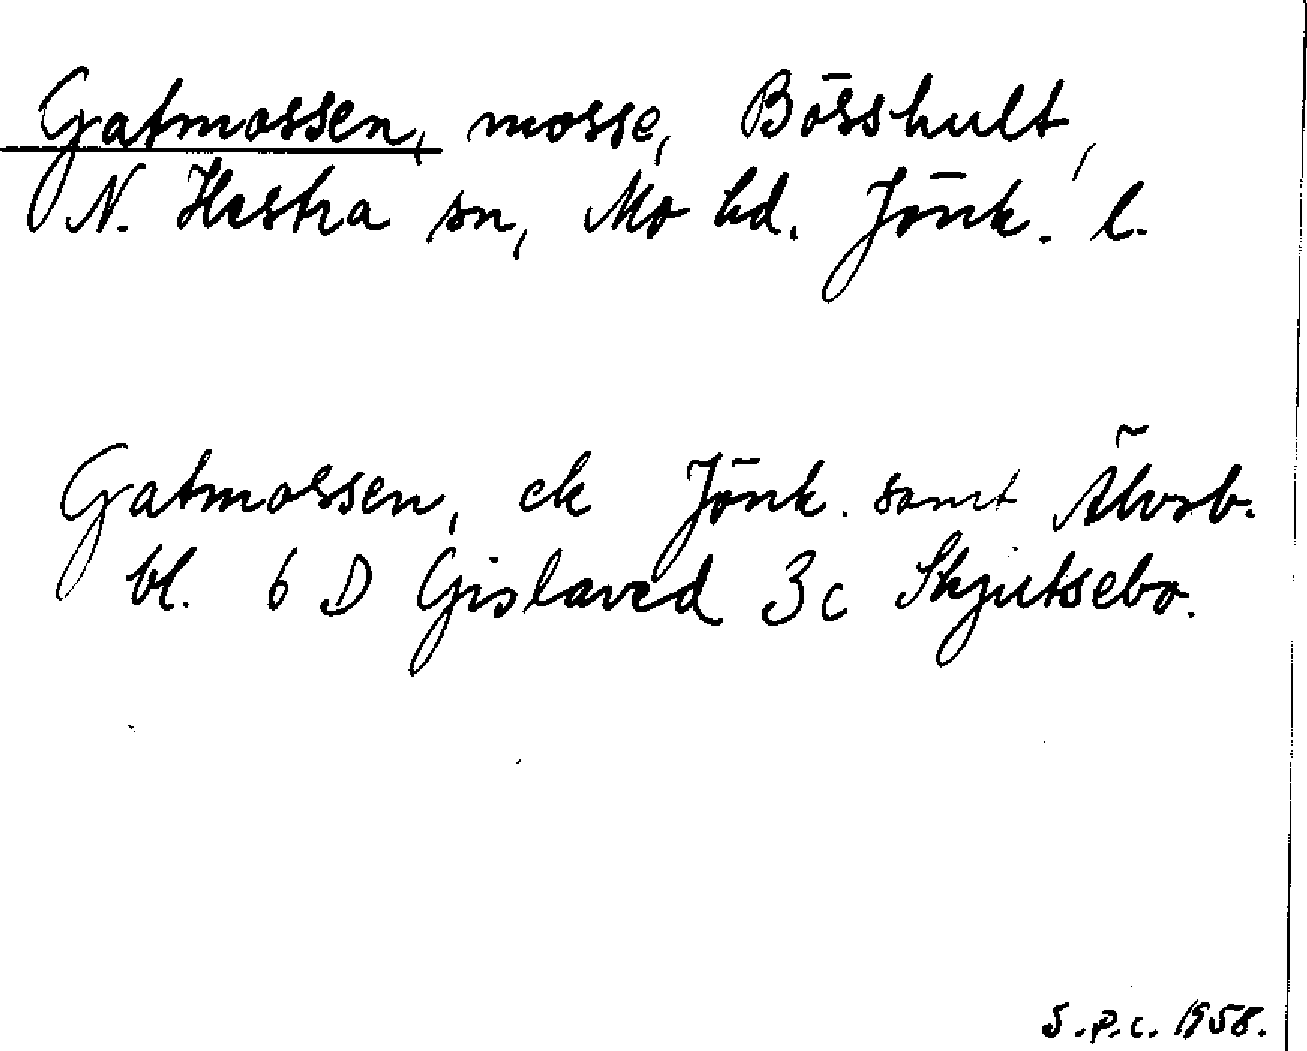 Gatmossen, mosse, Bösshult,
N. Hestra sn, Mo hd. Jönk. l.
Gatmossen, ek Jönk. samt Älvsb.
bl. 6 D Gislaved 3c Skjutsebo.
S.P.C. 1958.